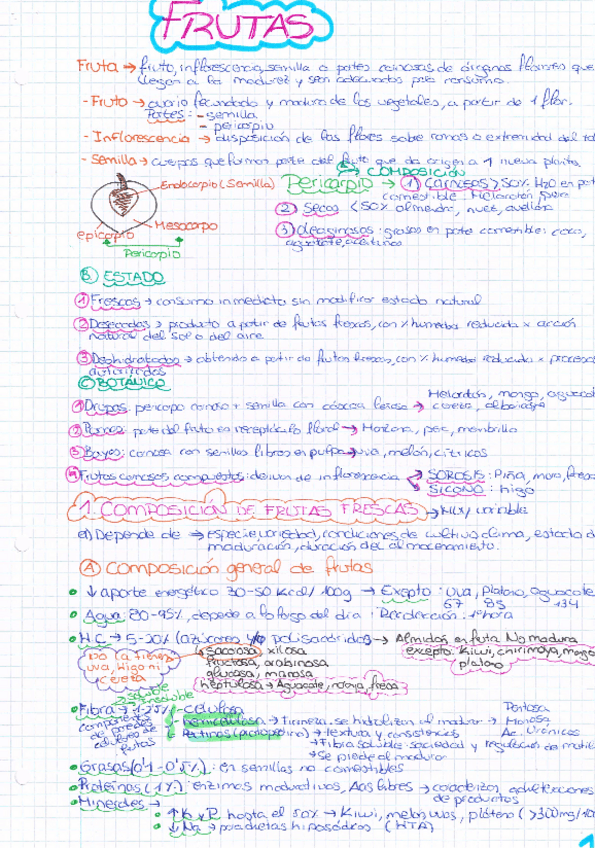 FRUTAS
Fruta → fruto, inflorescencia, semilla o partes carnosas de órganos florales que
llegan a la madurez y son adecuados para consumo.
- Fruto → ovario fecundado y maduro de los vegetales, a partir de 1 flor.
Partes: - semilla
- pericarpio
- Inflorescencia → disposición de las flores sobre ramas o extremidad del
- Semilla → cuerpos que forman parte del fruto que da origen a 1 nueva planta
COMPOSICIÓN
Endocarpio (Semilla)
Mesocarpo
epicarpio
Pericarpio
Pericarpio → 1) Carnosas > 50% H2O en
comestible: Melocotón, pera
2) Secos < 50% almendra, nuez, avellana
3) Oleaginosos: grasas en parte comestible: coco,
aguacate, aceitunas
B) ESTADO
1) Frescas → consumo inmediato sin modificar estado natural
2) Desecadas → producto a partir de frutas frescas, con % humedad reducida x acción
natural del sol o del aire
3) Deshidratadas → obtenido a partir de frutas frescas, con % humedad reducida x
autorizados
C) BOTÁNICO
1) Drupas: pericarpo carnoso + semilla con cáscara leñosa → Melocotón, mango,
cereza, albaricoque
2) Pomos: parte del fruto en receptáculo floral → Manzana, pera, membrillo
3) Bayas: carnosa con semillas libres en pulpa → uva, melón, cítricos
4) Frutas carnosas compuestas: derivan de inflorescencia → SOROSIS: Piña, mora, fresa
SICONO: higo
1. COMPOSICIÓN DE FRUTAS FRESCAS → Muy variable
a) Depende de → especie, variedad, condiciones de cultivo, clima, estado de
maduración, duración del almacenamiento.
A) Composición general de frutas
• ↓ aporte energético 30-50 kcal/100g → Excepto: Uva, Plátano, aguacate
67 85 134
• Agua: 80-95%, depende a lo largo del día : Recolección: 1ª hora
• H.C → 5-20% (azúcares y/o polisacáridos) → Almidón en fruta No madura
excepto: kiwi, chirimoya, mango
plátano
NO la tienen
uva, higo ni
cereza
sacarosa xilosa
fructosa, arabinosa
glucosa, manosa
heptulosa → Aguacate, naranja, fresa
soluble
insoluble
• Fibra → 1-2,5% - celulosa
componentes
de paredes
celulares de
frutas
- Hemicelulosa → firmeza, se hidrolizan al madurar →
Pentosa
Hexosa
Ac. Urónicos
- Pectinas → textura y consistencia
→ Fibra soluble: saciedad y regulación de
→ Se pierde al madurar
• Grasas (0'1-0'5%): en semillas no comestibles
• Proteínas (1%): enzimas madurativas, Aas libres →
de productos
• Minerales →
• ↑ K y P hasta el 50% → Kiwi, melón, uvas, plátano (>300mg/100
• ↓ Na → para dietas hiposódicas (HTA)
1